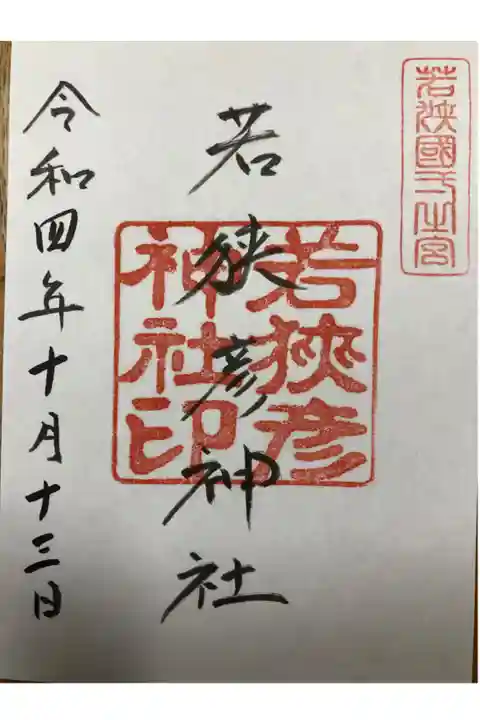 若狹國一之宮
若狹彦神社
若狹彦
神社印
令和四年十月十三日